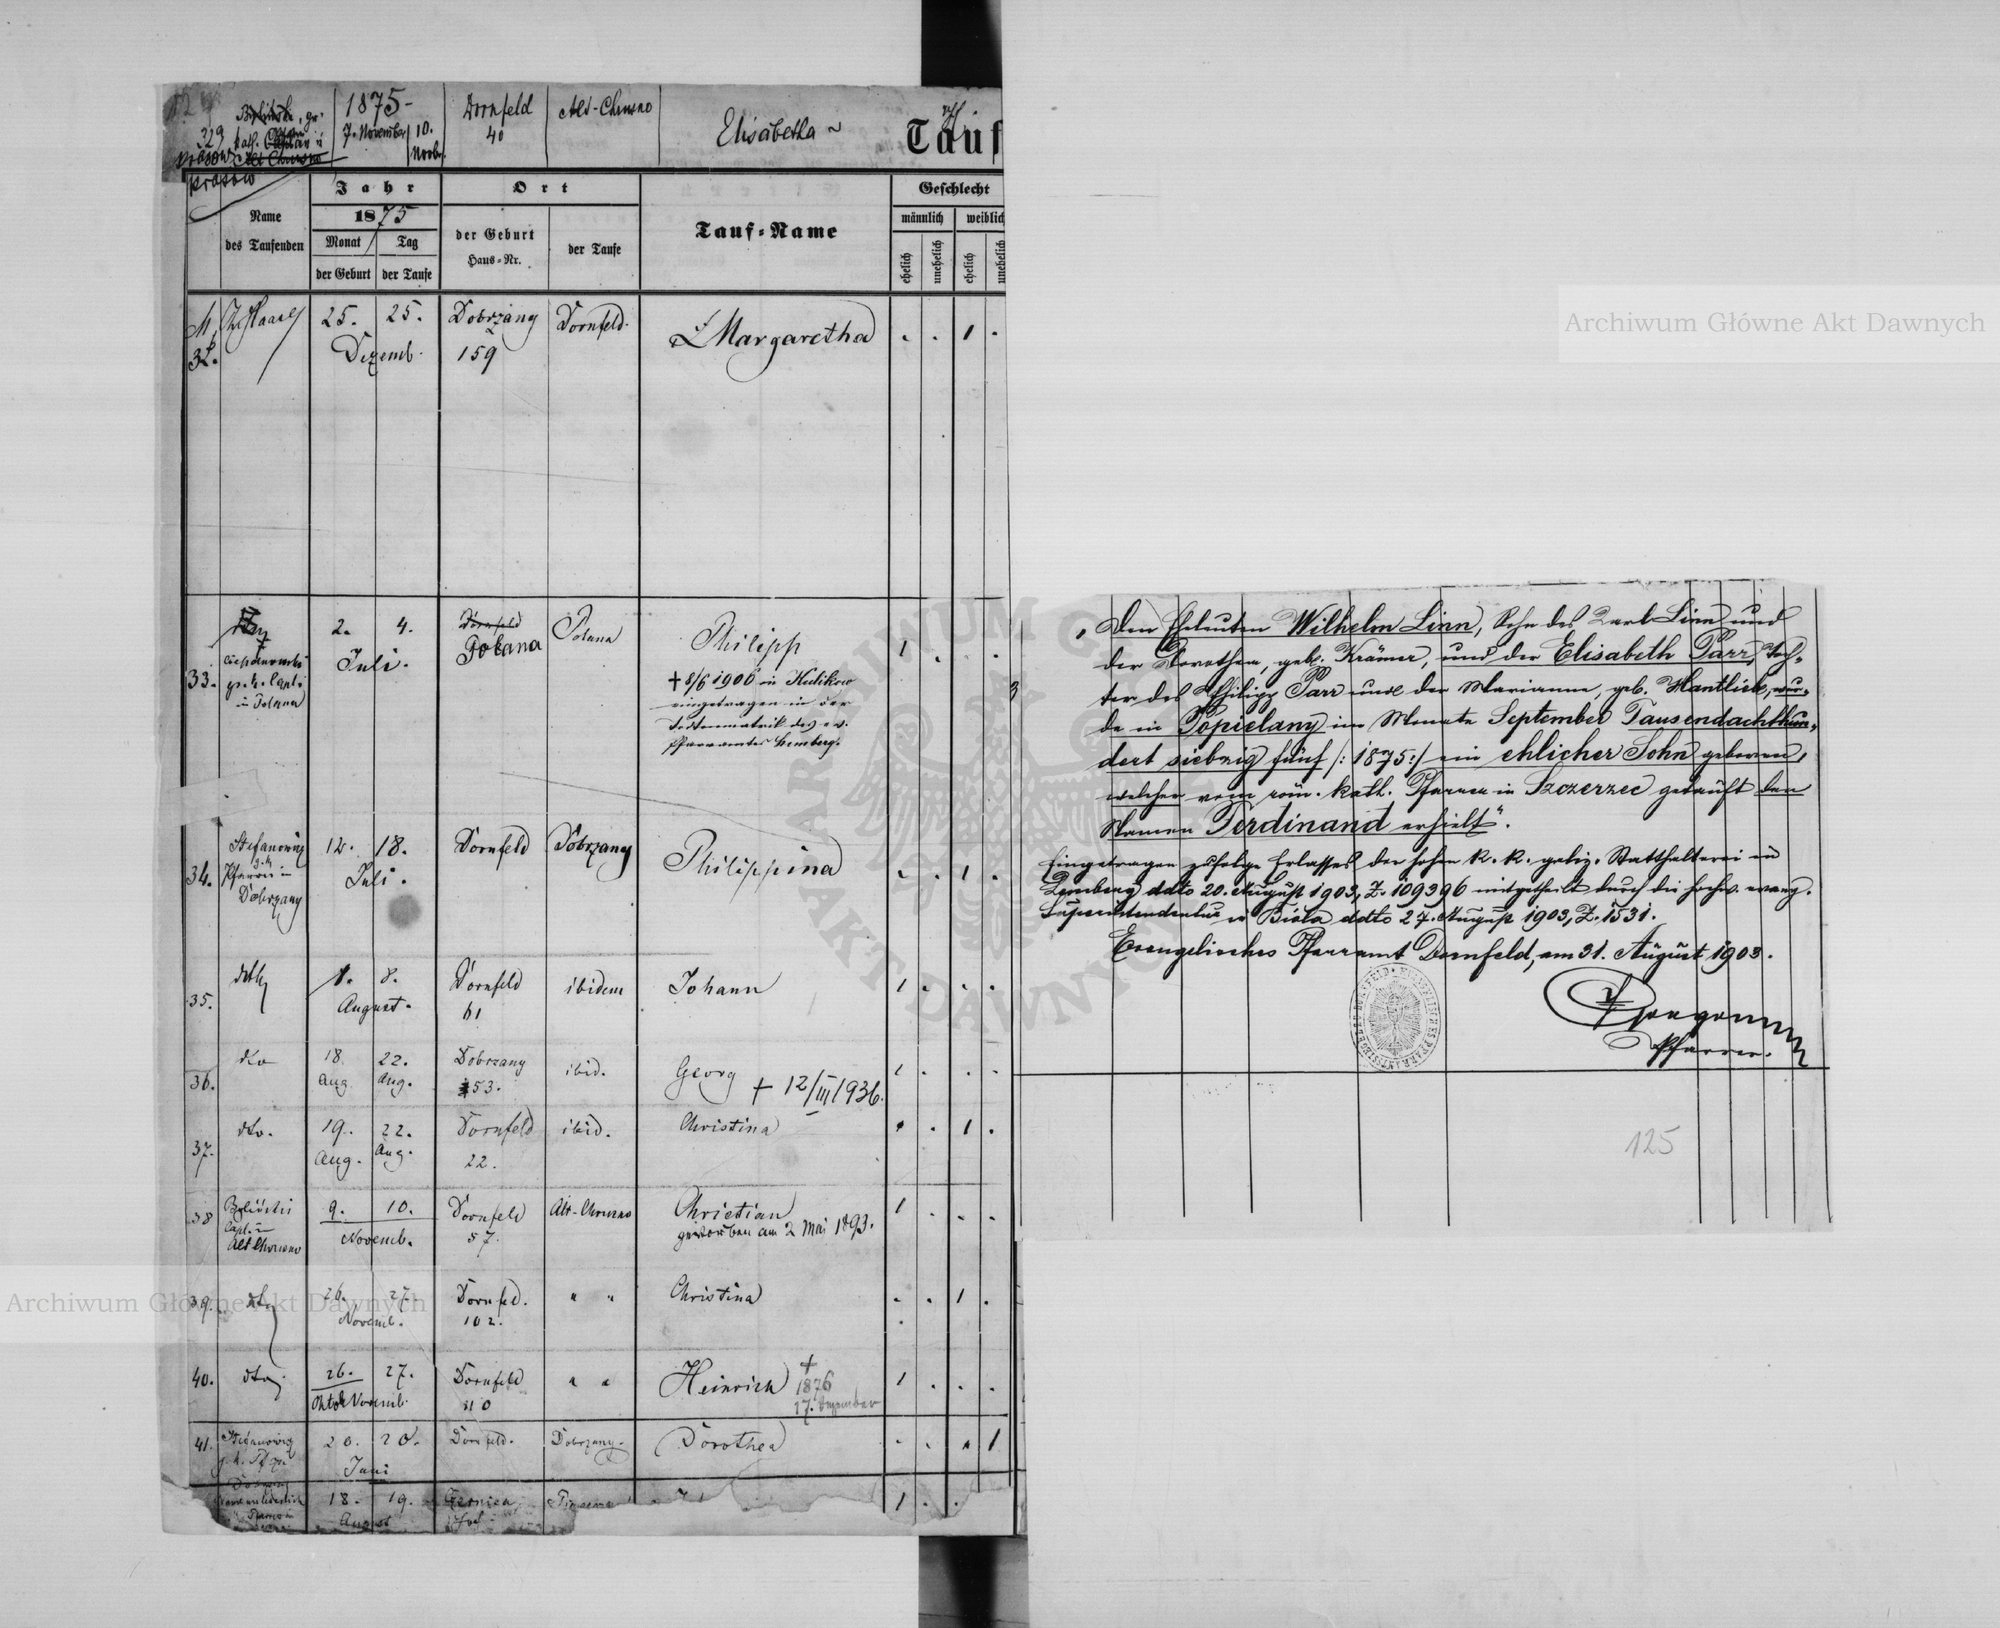 329
1875-
7. November
10.
Novbr.
Dornfeld
40
Alt-Chrusno
Elisabetha
Tauf
Jahr
1875
Monat
Tag
der Geburt
der Taufe
Name
des Taufenden
Ort
der Geburt
Haus-Nr.
der Taufe
Tauf-Name
Geschlecht
männlich
weiblich
ehelich
unehelich
ehelich
unehelich
25. 25. Dobrzany Dornfeld. Margaretha 1
Dezemb. 159
33.
in Polana
2. 4. Dornfeld Polana Philipp 1
Juli. Polana
+ 8/6 1906 in Kulikow
eingetragen in der
Totenmatrik des ev.
Pfarramtes Lemberg.
34. Stefanowicz
Pfarrer in
Dobrzany
12. 18. Dornfeld Dobrzany Philippina 1
Juli.
35. 8. Dornfeld ibidem Johann 1
August. 61
36. dto 18. 22. Dobrzany ibid. Georg + 12/III 1936. 1
Aug. Aug. 53.
37. dto. 19. 22. Dornfeld ibid. Christina 1
Aug. Aug. 22.
38 9. 10. Dornfeld Alt-Chrusno Christian 1
Alt Chrusno Novemb. 57. gestorben am 2 Mai 1893.
39. dto 26. 27. Dornfeld. " " Christina 1
Novemb. 102.
40. dto 26. 27. Dornfeld " " Heinrich + 1876 1
Oktob Novemb. 110 17. Dezember
41. Stefanowicz 20. 20. Dornfeld. Dobrzany. Dorothea 1
Juni
18. 19. 1
August
Den Eheleuten Wilhelm Linn, Sohn des Karl Linn und
der Dorothea, geb. Krämer, und der Elisabeth Parr, Toch-
ter des Philipp Parr und der Marianne, geb. Hantlick, wur-
de in Popielany im Monate September Tausendachthun-
dert siebzig fünf /: 1875 :/ ein ehlicher Sohn geboren,
welcher vom röm. kath. Pfarrer in Szczerzec getauft den
Namen Ferdinand erhielt".
Eingetragen zufolge Erlasses der hohen k. k. galiz. Statthalterei in
Lemberg ddto 20. August 1903, Z. 109396 mitgetheilt durch die hochw. evang.
Superintendentur in Biala ddto 27. August 1903, Z. 1531.
Evangelisches Pfarramt Dornfeld, am 31. August 1903.
Pfarrer.
125
Archiwum Główne Akt Dawnych
Archiwum Główne Akt Dawnych
ARCHIWUM GŁÓWNE AKT DAWNYCH